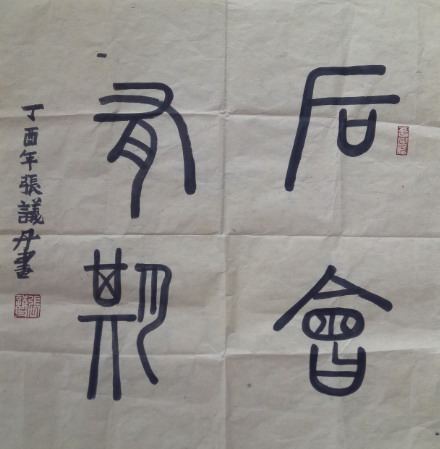 后會
有期
丁酉年張議丹書